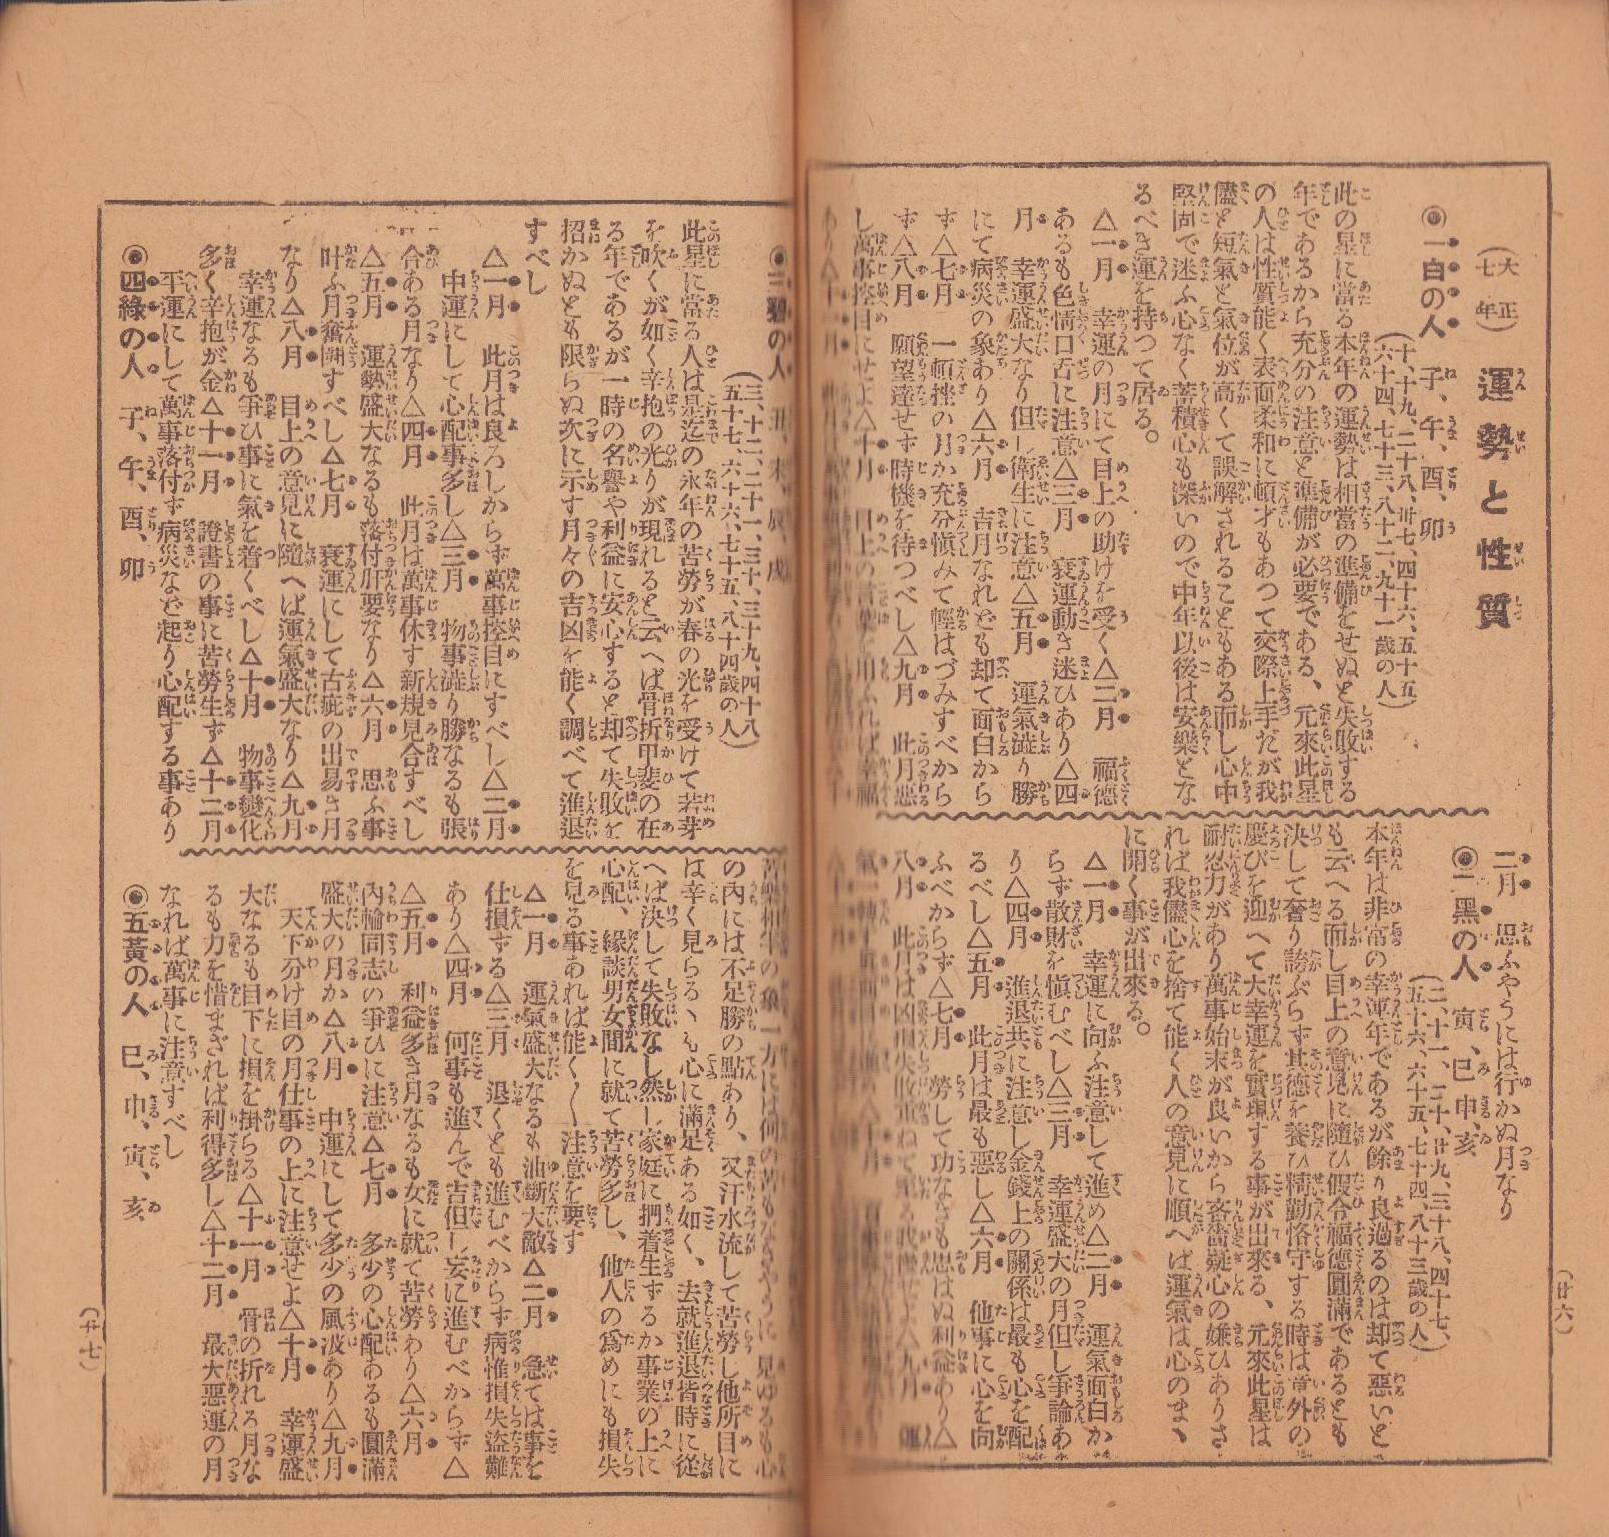 (大正七年) 運勢と性質
◉一白の人 子、午、酉、卯
(十、十九、二十八、卅七、四十六、五十五
六十四、七十三、八十二、九十一歲の人)
此の星に當る本年の運勢は相當の準備をせぬと失敗する
年であるから充分の注意と準備が必要である、元來此星
の人は性質能く表面柔和に頓才もあつて交際上手だが我
儘と短氣と氣位が高くて誤解されることもある而し心中
堅固で迷ふ心なく蓄積心も深いので中年以後は安樂とな
るべき運を持つて居る。
△一月 幸運の月にて目上の助けを受く△二月 福德
あるも色情口舌に注意△三月 衰運動き迷ひあり△四
月 幸運盛大なり但し衞生に注意△五月 運氣澁り勝
にて病災の象あり△六月 吉月なれども却て面白から
ず△七月 一頓挫の月か充分愼みて輕はづみすべから
ず△八月 願望達せず時機を待つべし△九月 此月惡
し萬事控目にせよ△十月 目上の言葉に用ふれば幸福
二月 思ふやうには行かぬ月なり
◉二黑の人 寅、巳、申、亥
(二、十一、二十、廿九、三十八、四十七、
五十六、六十五、七十四、八十三歲の人)
本年は非常の幸運年であるが餘り良過るのは却て惡いと
も云へる而し目上の意見に隨ひ假令福德圓滿であるとも
決して奢り誇ぶらず其德を養ひ精勤恪守する時は意外の
慶びを迎へて大幸運を實現する事が出來る、元來此星は
耐忍力があり萬事始末が良いから吝嗇疑心の嫌ひありさ
れば我儘心を捨て能く人の意見に順へば運氣は心のまゝ
に開く事が出來る。
△一月 幸運に向ふ注意して進め△二月 運氣面白か
らず散財を愼むべし△三月 幸運盛大の月但し爭論あ
り△四月 進退共に注意し金錢上の關係は最も心を配
るべし△五月 此月は最も惡し△六月 他事に心を向
ふべからず△七月 勞して功なきも思はぬ利益あり△
八月 此月は凶相失敗重ねて
(廿六)
◉三碧の人 丑、未、辰、戌
(三、十二、二十一、三十、三十九、四十八
五十七、六十六、七十五、八十四歲の人)
此星に當る人は是迄の永年の苦勞が春の光を受けて若芽
を吹くが如く辛抱の光りが現れると云へば骨折甲斐の在
る年であるが一時の名譽や利益に安心すると却て失敗を
招かぬとも限らぬ次に示す月々の吉凶を能く調べて進退
すべし
△一月 此月は良ろしからず萬事控目にすべし△二月
中運にして心配事多し△三月 物事澁り勝なるも張
合ある月なり△四月 此月は萬事休す新規見合すべし
△五月 運勢盛大なるも落付肝要なり△六月 思ふ事
叶ふ月奮鬪すべし△七月 衰運にして古疵の出易き月
なり△八月 目上の意見に隨へば運氣盛大なり△九月
幸運なるも爭ひ事に氣を着くべし△十月 物事變化
多く辛抱が金△十一月 證書の事に苦勞生ず△十二月
平運にして萬事落付ず病災など起り心配する事あり
◉四綠の人 子、午、酉、卯
の內には不足勝の點あり、又汗水流して苦勞し他所目に
は辛く見らるゝも心に滿足ある如く、去就進退皆時に從
へば決して失敗なし然し家庭に捫着生ずるか事業の上に
心配、緣談男女間に就て苦勞多し、他人の爲めにも損失
を見る事あれば能く〱注意を要す
△一月 運氣盛大なるも油斷大敵△二月 急ては事を
仕損ずる△三月 退くとも進むべからず病難損失盜難
あり△四月 何事も進んで吉但し妄に進むべからず△
△五月 利益多き月なるも女に就て苦勞わり△六月
內輪同志の爭ひに注意△七月 多少の心配あるも圓滿
盛大の月か△八月 中運にして多少の風波あり△九月
天下分け目の月仕事の上に注意せよ△十月 幸運盛
大なるも目下に損を掛らる△十一月 骨の折れる月な
るも力を惜まざれば利得多し△十二月 最大惡運の月
なれば萬事に注意すべし
◉五黃の人 巳、申、寅、亥
(廿七)